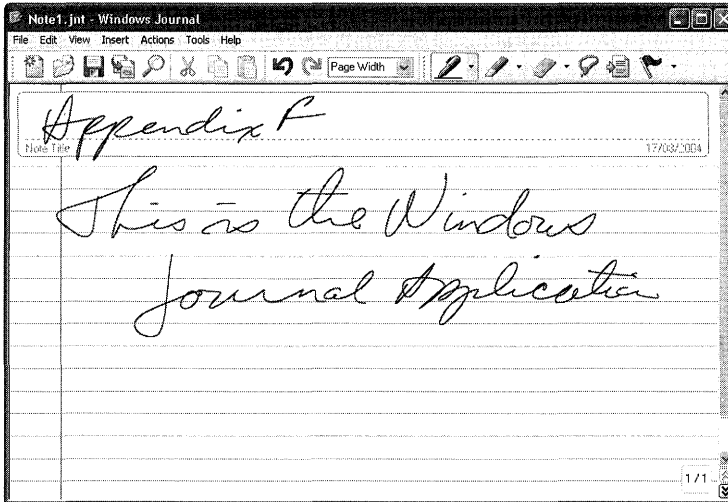 Note1.jnt - Windows Journal
File Edit View Insert Actions Tools Help
Page Width
Appendix F
Note Title 17/08/2004
This is the Windows
Journal Application
1/1